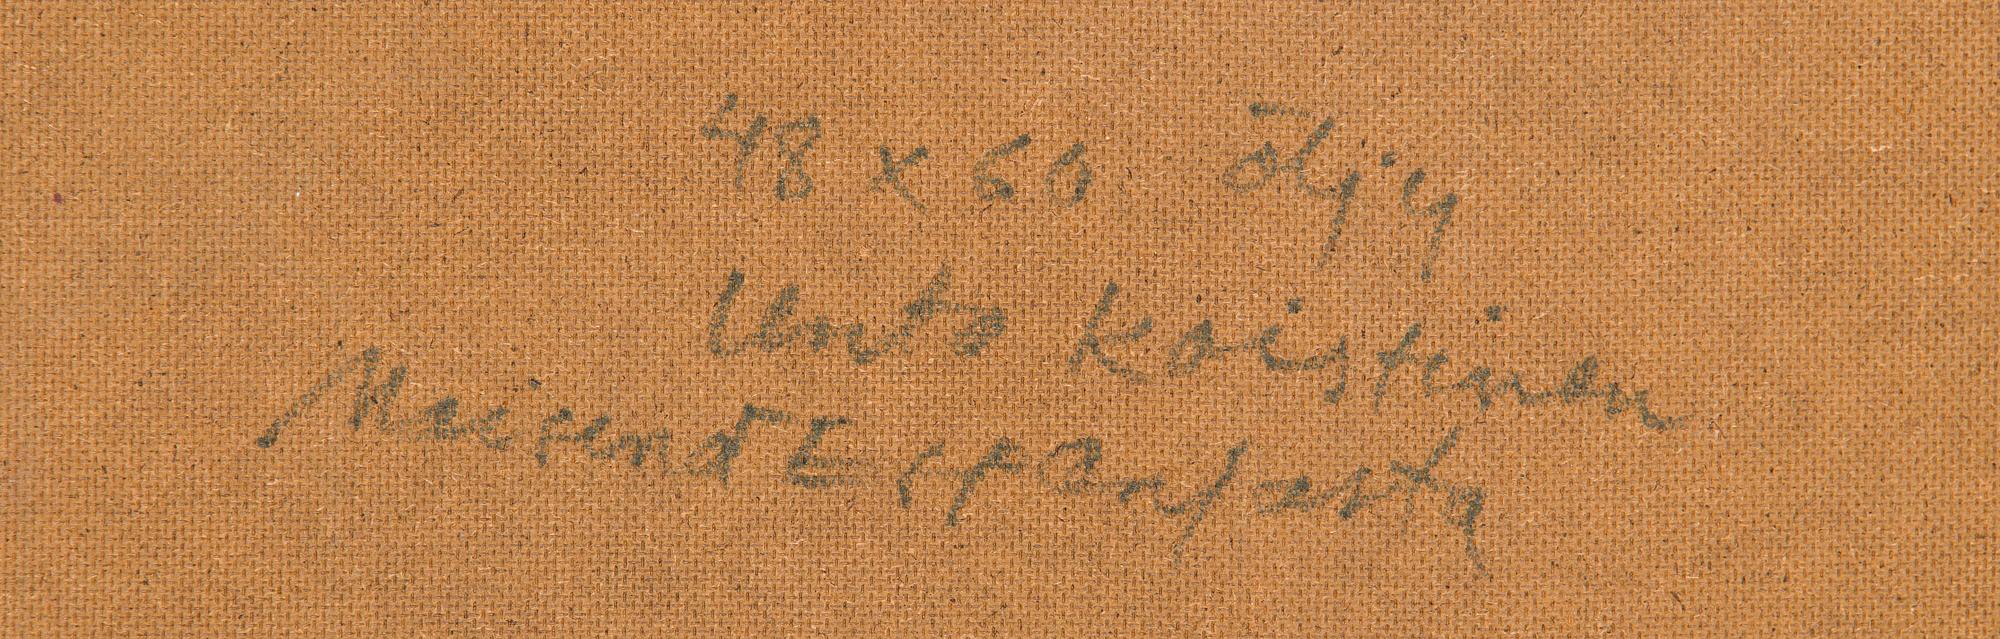 48 x 60 öljy
Unto Koistinen
Maisema Espanjasta